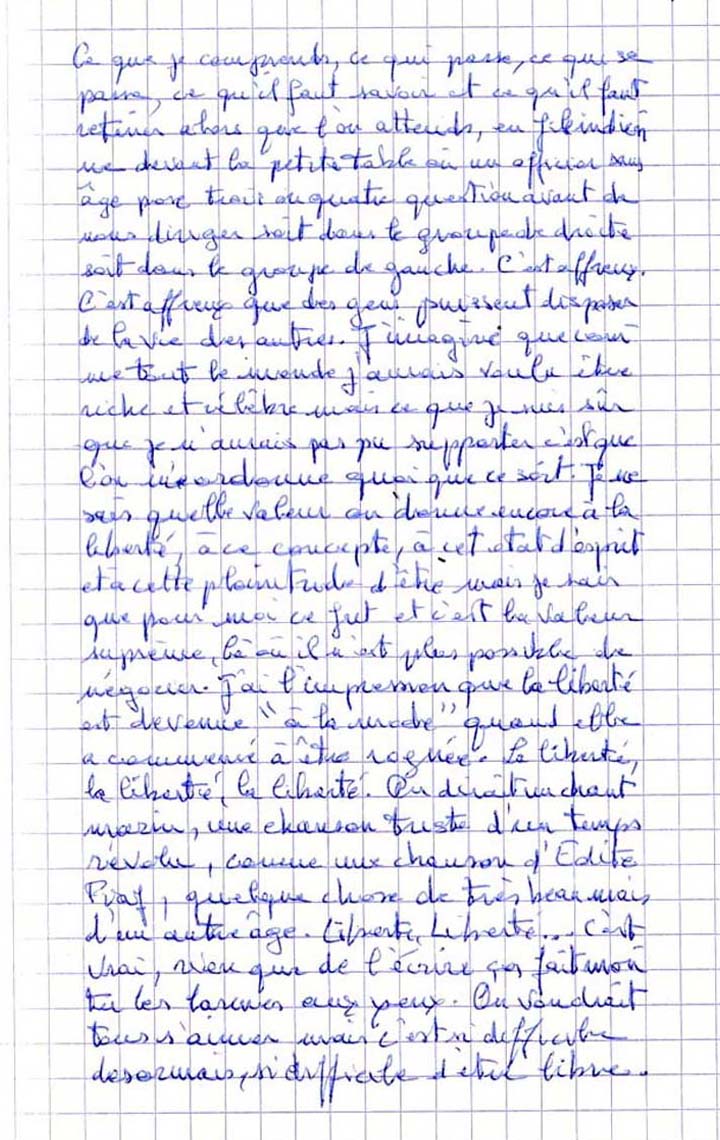 Ce que je comprends, ce qui passe, ce qui se
passe, ce qu'il faut savoir et ce qu'il faut
retenir alors que l'on attends, en file indien
ne devant la petite table où un officier sans
âge pose trois ou quatre question avant de
nous diriger soit dans le groupe de droite
soit dans le groupe de gauche. C'est affreux.
C'est affreux que des gens puissent disposer
de la vie des autres. J'imagine que com
me tout le monde j'aurais voulu être
riche et célèbre mais ce que je suis sûr
que je n'aurais pas pu supporter c'est que
l'on m'eordonne quoi que ce soit. Je ne
sais quelle valeur on donne encore à la
liberté, à ce concepte, à cet état d'esprit
et a cette plainitude d'être mais je sais
que pour moi ce fut et c'est la valeur
suprême, là où il n'est plus possible de
négocier. J'ai l'impression que la liberté
est devenue "à la mode" quand elle
a commencé à être rognée. La liberté,
la liberté, la liberté. On dirait un chant
marin, une chanson triste d'un temps
révolu, comme une chanson d'Edite
Piaf, quelque chose de très beau mais
d'un autre âge. Liberté, Liberté... C'est
vrai, rien que de l'écrire ça fait mon
ter les larmes aux yeux. On voudrait
tous s'aimer mais c'est si difficile
desormais, si difficile d'être libre.